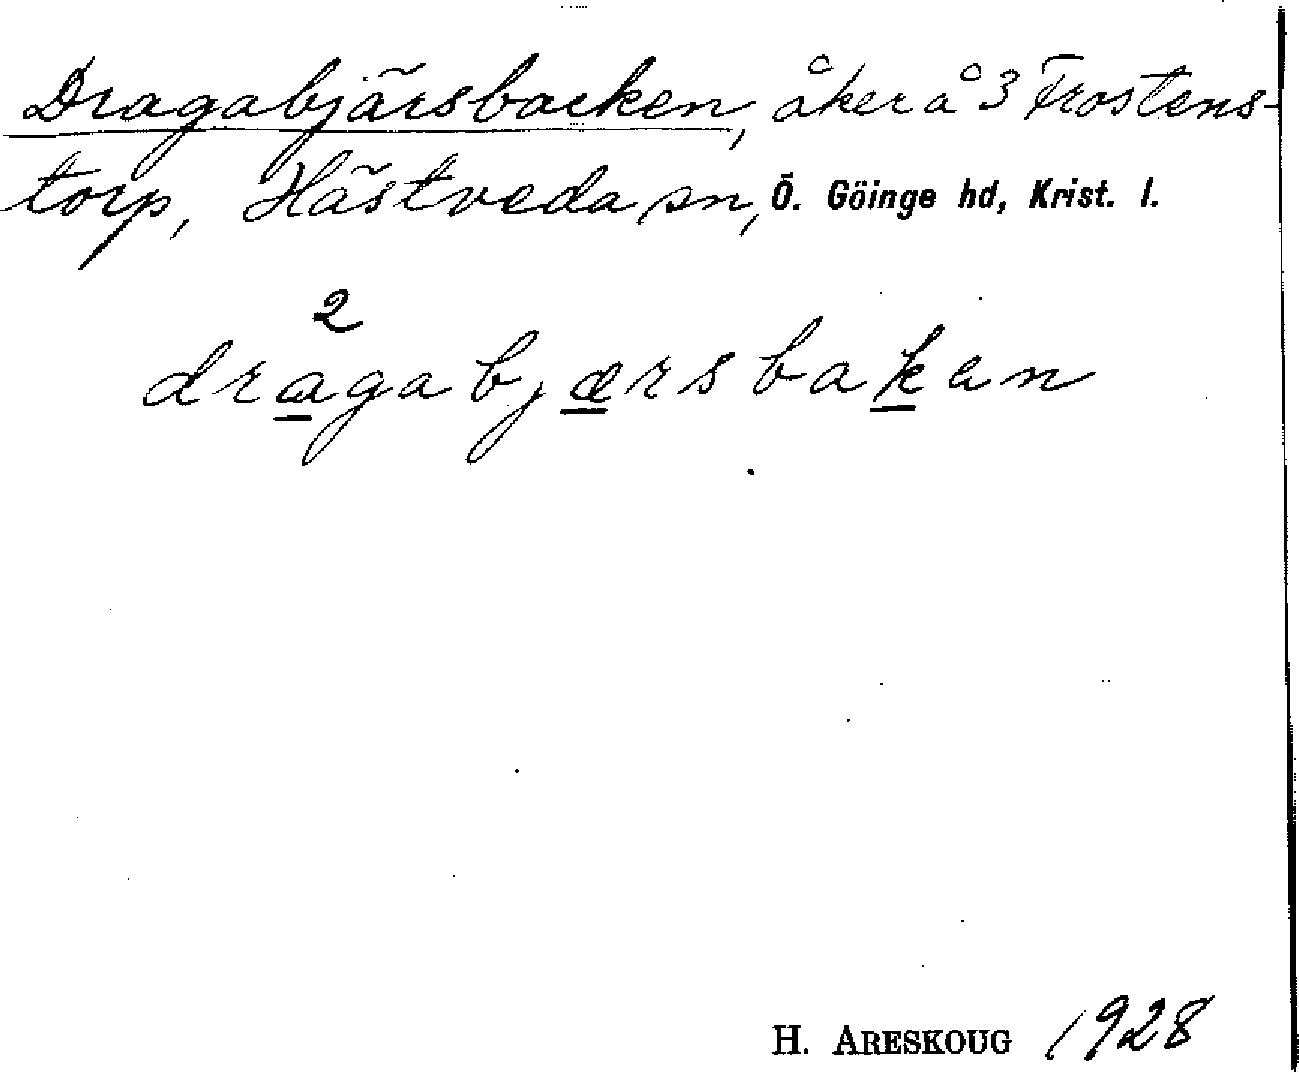 Dragabjärsbacken, åker å 3 Frostens-
torp, Hästveda sn, Ö. Göinge hd, Krist. l.
2
dragabjærsbaken
H. ARESKOUG 1928